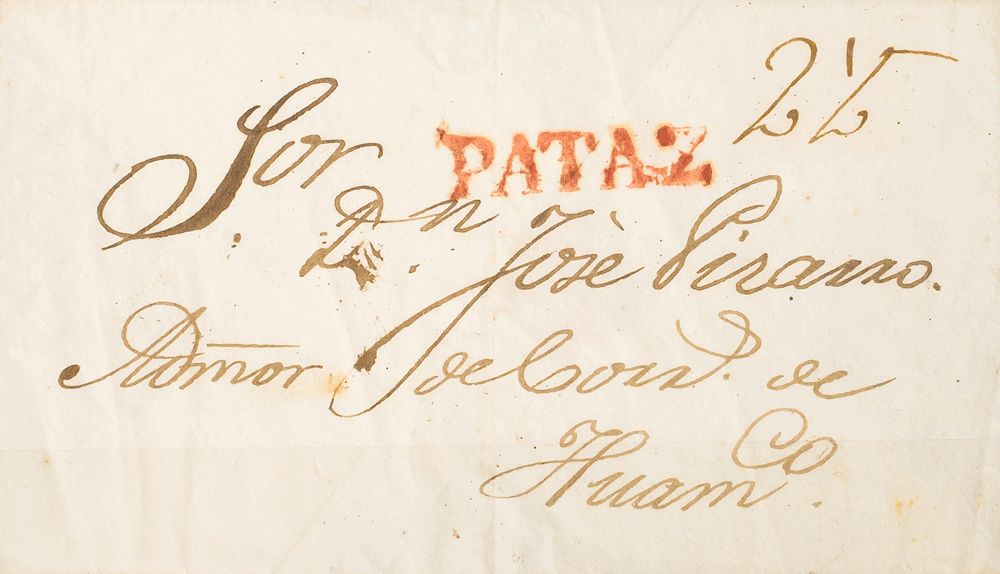 2 1/2
PATAZ
Sor.
Dn. Josè Pizarro.
Admor de Cord. de
Huamco.